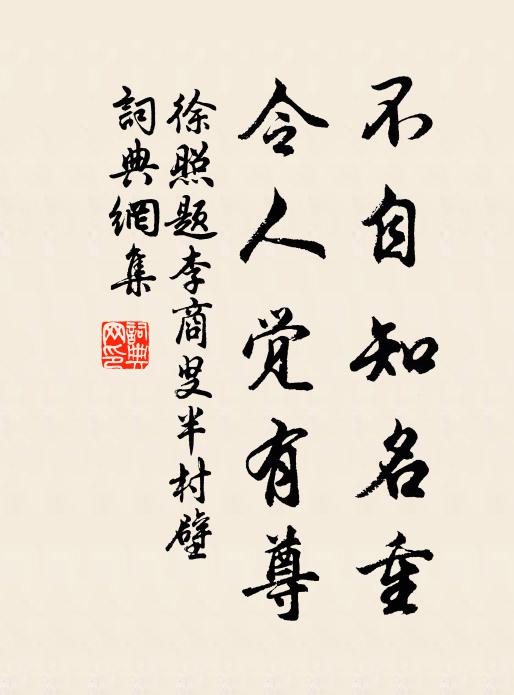 不自知名重
令人觉有尊
徐照题李商叟半村壁
詞典網集
詞典网印